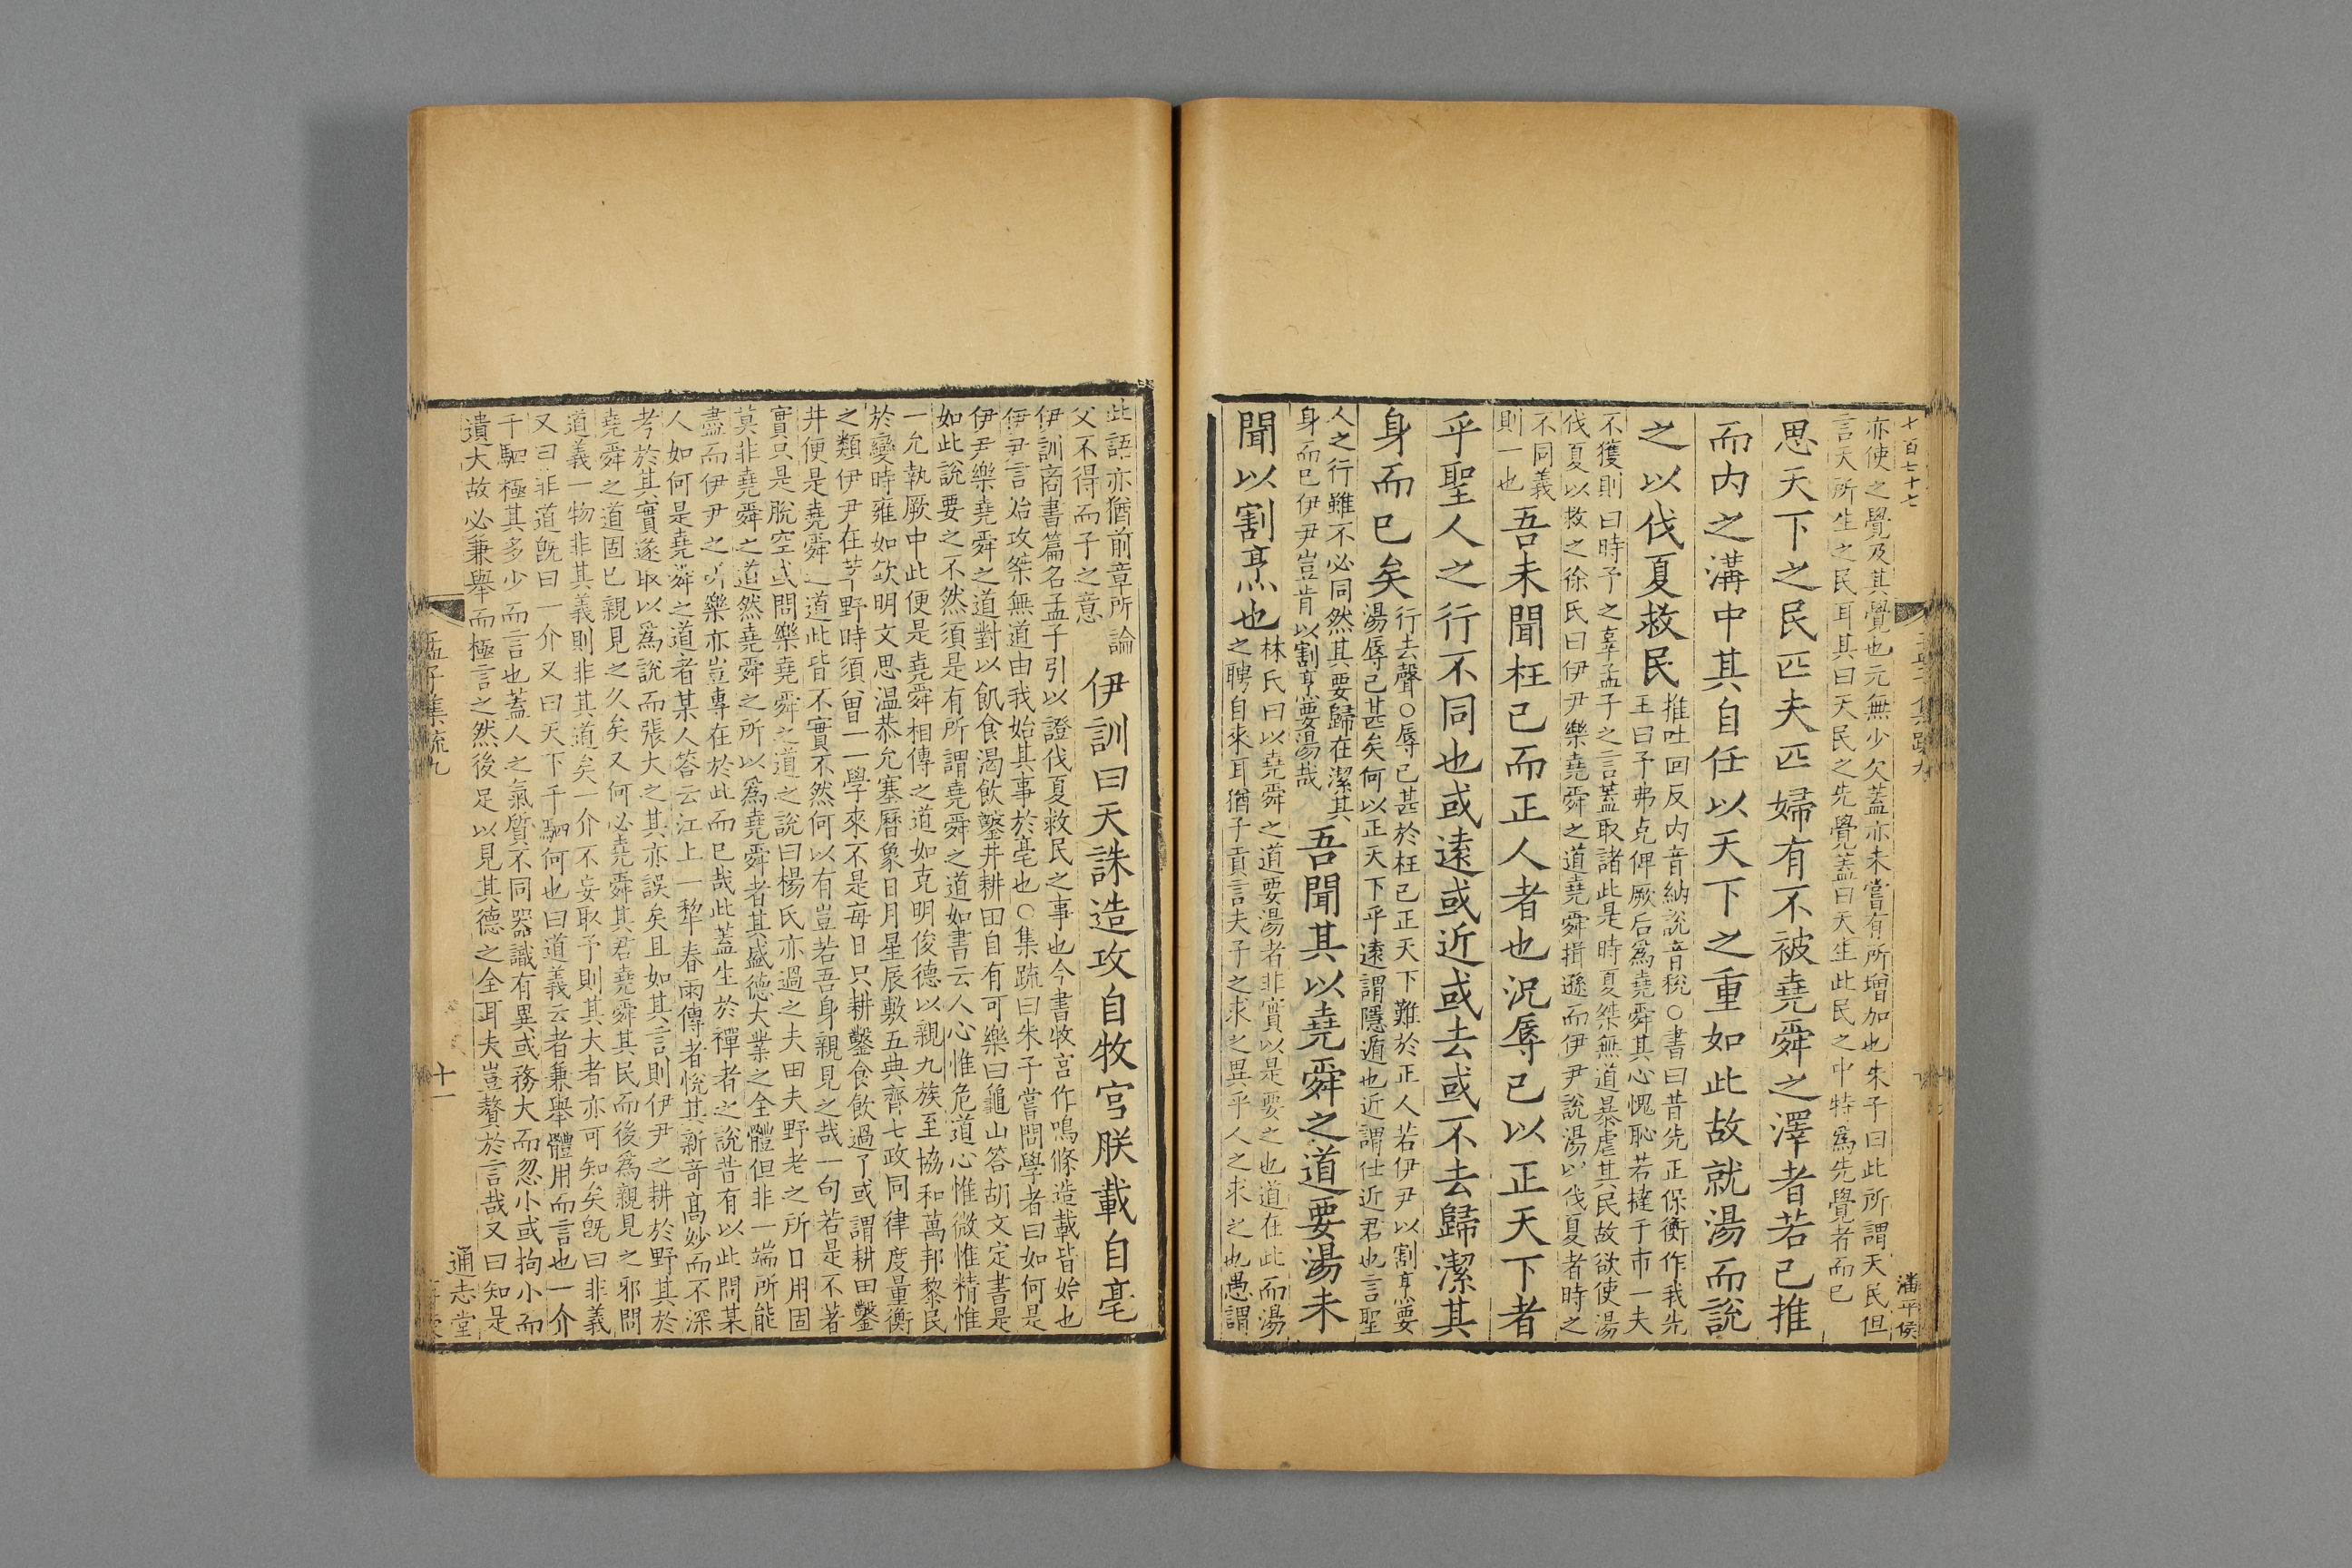 十百七十七
潘平侯
亦使之覺及其覺也元無少欠蓋亦未嘗有所增加也朱子曰此所謂天民但
言天所生之民耳其曰天民之先覺蓋曰天生此民之中特爲先覺者而已
思天下之民匹夫匹婦有不被堯舜之澤者若已推
而内之溝中其自任以天下之重如此故就湯而說
之以伐夏救民
推吐回反内音納說音稅○書曰昔先正保衡作我先
王曰予弗克俾厥后爲堯舜其心愧恥若撻于市一夫
不獲則曰時予之辜孟子之言蓋取諸此是時夏桀無道暴虐其民故欲使湯
伐夏以救之徐氏曰伊尹樂堯舜之道堯舜揖遜而伊尹說湯以伐夏者時之
不同義
則一也
吾未聞枉已而正人者也況辱已以正天下者
乎聖人之行不同也或遠或近或去或不去歸潔其
身而已矣
行去聲○辱已甚於枉已正天下難於正人若伊尹以割烹要
湯辱已甚矣何以正天下乎遠謂隱遁也近謂仕近君也言聖
人之行雖不必同然其要歸在潔其
身而已伊尹豈肯以割烹要湯哉
吾聞其以堯舜之道要湯未
聞以割烹也
林氏曰以堯舜之道要湯者非實以是要之也道在此而湯
之聘自來耳猶子貢言夫子之求之異乎人之求之也愚謂
此語亦猶前章所論
父不得而子之意
伊訓曰天誅造攻自牧宮朕載自亳
伊訓商書篇名孟子引以證伐夏救民之事也今書牧宮作鳴條造載皆始也
伊尹言始攻桀無道由我始其事於亳也○集疏曰朱子嘗問學者曰如何是
伊尹樂堯舜之道對以飢食渴飲鑿井耕田自有可樂曰龜山答胡文定書是
如此說要之不然須是有所謂堯舜之道如書云人心惟危道心惟微惟精惟
一允執厥中此便是堯舜相傳之道如克明俊德以親九族至協和萬邦黎民
於變時雍如欽明文思温恭允塞曆象日月星辰敷五典齊七政同律度量衡
之類伊尹在莘野時須曽一一學來不是每日只耕鑿食飲過了或謂耕田鑿
井便是堯舜之道此皆不實不然何以有豈若吾身親見之哉一句若是不著
實只是脫空或問樂堯舜之道之說曰楊氏亦過之夫田夫野老之所日用固
莫非堯舜之道然堯舜之所以爲堯舜者其盛德大業之全體但非一端所能
盡而伊尹之所樂亦豈專在於此而已哉此蓋生於禪者之說昔有以此問某
人如何是堯舜之道者某人答云江上一犂春雨傳者悅其新竒髙妙而不深
考於其實遂取以爲說而張大之其亦誤矣且如其言則伊尹之耕於野其於
堯舜之道固已親見之久矣又何必堯舜其君堯舜其民而後爲親見之邪問
道義一物非其義則非其道矣一介不妄取予則其大者亦可知矣旣曰非義
又曰非道旣曰一介又曰天下千駟何也曰道義云者兼舉體用而言也一介
千駟極其多少而言也蓋人之氣質不同器識有異或務大而忽小或拘小而
遺大故必兼舉而極言之然後足以見其德之全耳夫豈贅於言哉又曰知是
孟子集疏九
十一
通志堂